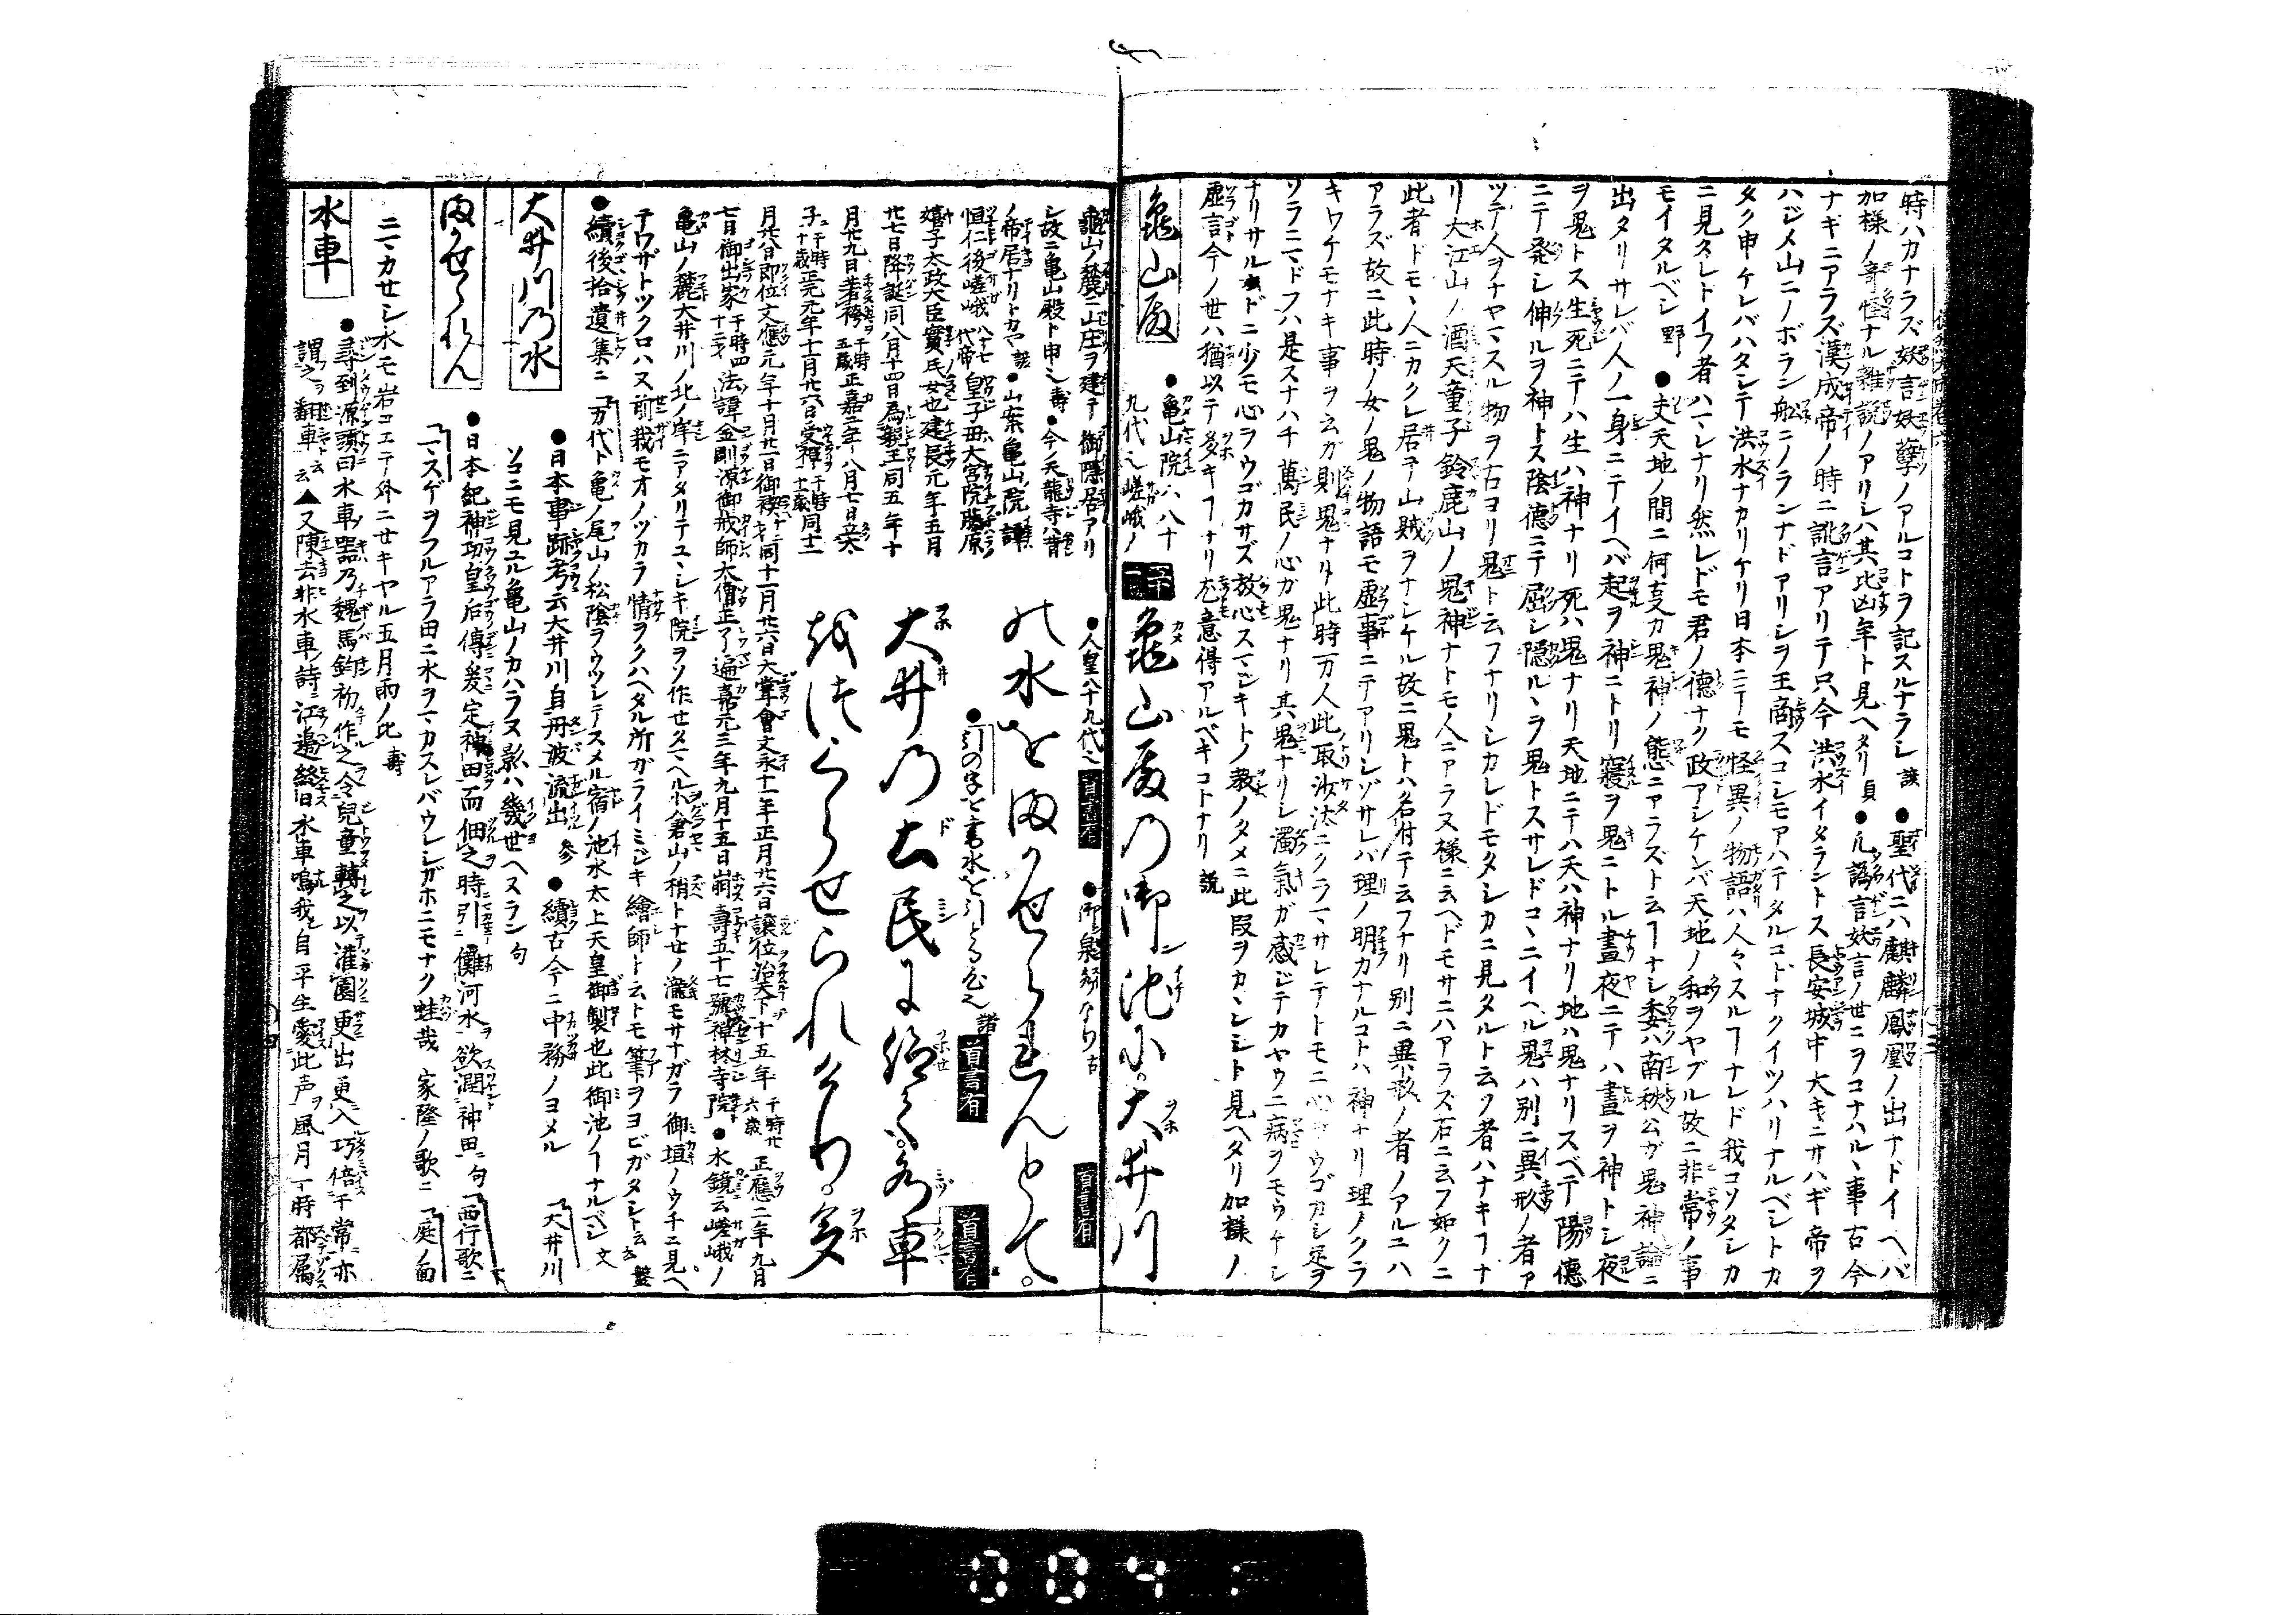 時ハカナラズ妖言妖孽ノアルコトヲ記スルナラシ 諺 ●聖代ニハ麒麟鳳凰ノ出ナドイヘバ
加様ノ奇怪ナル雜説ノアリシハ其比凶年ト見ヘタリ 貞 ●凡譌言妖言ノ世ニヲコナハルヽ事古今
ナキニアラズ漢成帝ノ時ニ訛言アリテ只今洪水イタラントス長安城中大キニサハギ帝ヲ
ハジメ山ニノボラン舩ニノランナドアリシヲ王商スコシモアハテタルコトナクイツハリナルベシトカ
タク申ケレバハタシテ洪水ナカリケリ日本ニテモ怪異ノ物語ハ人々スルヿナレド我コソタシカ
ニ見タレトイフ者ハマレナリ然レドモ君ノ德ナク政アシケンバ天地ノ和ヲヤブル故ニ非常ノ事
モイタルベシ 野 ●夫天地ノ間ニ何支カ鬼神ノ態ニアラズト云ヿナシ委ハ南秋公ガ鬼神論ニ
出タリサレバ人ノ一身ニテイヘバ起ヲ神ニトリ寢ヲ鬼ニトル晝夜ニテハ晝ヲ神トシ夜
ヲ鬼トス生死ニテハ生ハ神ナリ死ハ鬼ナリ天地ニテハ天ハ神ナリ地ハ鬼ナリスベテ陽德
ニテ発シ伸ルヲ神トス陰德ニテ屈シ隱ルヽヲ鬼トスサレドコヽニイヘル鬼ハ別ニ異形ノ者ア
ツテ人ヲナヤマスル物ヲ古ヨリ鬼ト云フナリシカレドモタシカニ見タルト云フ者ハナキヿナ
リ大江山ノ酒天童子鈴鹿山ノ鬼神ナトモ人ニアラヌ樣ニ云ヘドモサニハアラズ石ニ云フ如クニ
此者ドモヽ人ニカクレ居テ山賊ヲナシケル故ニ鬼トハ名付テ云フナリ別ニ異形ノ者ノアルニハ
アラズ故ニ此時ノ女ノ鬼ノ物語モ虚事ニテアリシゾサレバ理ノ明カナルコトハ神ナリ理ノクラ
キワケモナキ事ヲ云ガ則鬼ナリ此時万人此取沙汰ニクラマサレテトモニ心ヲウゴカシ足ヲ
ソラニマドフハ是スナハチ萬民ノ心ガ鬼ナリ其鬼ナリシ濁氣ガ感ジテカヤウニ病ヲモウケシ
ナリサルホドニ少モ心ヲウゴカサズ放心スマジキトノ教ノタメニ此段ヲカヽレシト見ヘタリ加樣ノ
虚言今ノ世ハ猶以テ多キヿナリ尤意得アルベキコトナリ 説
龜山殿 ●亀山院ハ八十九代之嵯峨ノ
五十一 龜山殿乃御池に。大井川
龜山ノ麓ニ山庄ヲ建テ御隱居アリ ●人皇八十九代之 首書有 ●御泉水なり 古 首書有
シ故ニ亀山殿ト申シ 壽 ●今ノ天龍寺ハ昔
ノ帝居ナリトカヤ 諺 ●山案亀山院諱
恒仁後嵯峨八十七代帝ノ皇子母大宮院藤原
嬉子太政大臣實氏女也建長元年五月
廿七日降誕同八月十四日為親王同五年十
月廿九日著袴 于時五歳 正嘉二年八月七日立太
子 于時十歳 正元元年十一月廿六日受禅 于時十一歳 同十二
の水をまかせられんとて。
●引の字を書水を引とる心之 諸 首書有 首書有
大井の土民に仰て。水車
を作らせられけり。多
月廿八日即位文應元年十月廿一日御禊 同十一月廿六日大嘗會文永十一年正月廿六日讓位治天下十五年 于時廿六歳 正應二年九月
七日御出家 于時四十一才 法諱金剛源御戒師大僧正了遍嘉元三年九月十五日崩壽五十七號禅林寺院 ●水鏡云嵯峨ノ
亀山ノ麓大井川ノ北ノ岸ニアタリテユヽシキ院ヲソ作セタマヘル小倉山ノ梢トナセノ瀧モサナガラ御垣ノウチニ見ヘ
テワザトツクロハヌ前栽モオノツカラ情ヲクハヘタル所ガライミジキ繪師ト云トモ筆ヲヨビガタシト云々 盤
●續後拾遺集ニ「万代ト亀ノ尾山ノ松陰ヲウツシテスメル宿ノ池水太上天皇御製也此御池ノヿナルベシ 文
大井川乃水 ●日本事跡考云大井川自丹波流出 参 ●續古今ニ中務ノヨメル「大井川
ソコニモ見ユル亀山ノカハラヌ影ハ幾世ヘヌラン 句
まかせられん ●日本紀神功皇后傳爰定神田而佃之時引儺河水欲潤神田 句「西行歌ニ
「マスゲヲフルアラ田ニ水ヲマカスレバウレシガホニモナク蛙哉 家隆ノ歌ニ「庭ノ面
ニマカセシ水モ岩コエテ外ニセキヤル五月雨ノ比 壽
水車 ●尋到源頭曰水車器乃魏馬鈞初作之令兒童轉之以灌園更出更入巧倍于常亦
謂之翻車云▲又陳去非水車詩ニ江邉終旧水車鳴我自平生愛此声ヲ風月一時都属